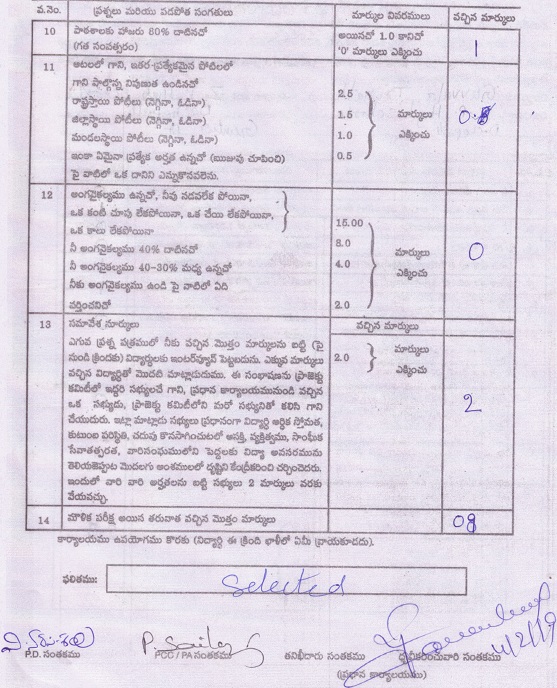 వ.నెం. ప్రశ్నలు మరియు పడపోత సంగతులు మార్కుల వివరములు వచ్చిన మార్కులు
10 పాఠశాలకు హాజరు 80% దాటినదో అయినదో 1.0 కానిదో 1
(గత సంవత్సరం) '0' మార్కులు ఎక్కించు
11 ఆటలలో గాని, ఇతర ప్రత్యేకమైన పోటీలలో
గాని పాల్గొన్న నిపుణుత ఉండినదో
రాష్ట్రస్థాయి పోటీలు (నెగ్గినా, ఓడినా) 2.5
జిల్లాస్థాయి పోటీలు (నెగ్గినా, ఓడినా) 1.5 మార్కులు
మండలస్థాయి పోటీలు (నెగ్గినా, ఓడినా) 1.0 ఎక్కించు
ఇంకా ఏమైనా ప్రత్యేక అర్హత ఉన్నదో (ఋజువు చూపించి) 0.5
పై వాటిలో ఒక దానిని ఎన్నుకొనవలెను.
12 అంగవైకల్యము ఉన్నదో, నీవు నడవలేక పోయినా,
ఒక కంటి చూపు లేకపోయినా, ఒక చేయి లేకపోయినా, 15.00
ఒక కాలు లేకపోయినా 8.0
నీ అంగవైకల్యము 40% దాటినదో 4.0 మార్కులు 0
నీ అంగవైకల్యము 40-30% మధ్య ఉన్నదో ఎక్కించు
నీకు అంగవైకల్యము ఉండి పై వాటిలో ఏది
వర్తించనిదో 2.0
13 సమావేశ మార్కులు వచ్చిన మార్కులు
ఎగువ ప్రశ్న పత్రములో నీకు వచ్చిన మొత్తం మార్కులను బట్టి (పై 2.0 మార్కులు
సుండి క్రిందకు) విద్యార్థులకు ఇంటర్వ్యూన్ పెట్టబడును. ఎక్కువ మార్కులు ఎక్కించు
వచ్చిన విద్యార్థితో మొదటి మాట్లాడుదురుము. ఈ సంభాషణను ప్రాజెక్టు
కమిటీలో ఇద్దరి సభ్యులచే గాని, ప్రధాన కార్యాలయమునుండి వచ్చిన
ఒక సభ్యుడు, ప్రాజెక్టు కమిటీలోని మరో సభ్యునితో కలిసి గాని 2
చేయుదురు. ఇట్లా మాట్లాడు సభ్యులు ప్రధానంగా విద్యార్థి ఆర్థిక స్తోమత,
కుటుంబ పరిస్థితి, చదువు కొనసాగించుటలో ఆసక్తి, వ్యక్తిత్వము, సాంఘీక
సేవాతత్పరత, వారిసంఘములోని పెద్దలకు విద్యా అవసరమును
తెలియజెప్పుట మొదలగు అంశములలో దృష్టిని కేంద్రీకరించి చర్చించెదరు.
ఇందులో వారి వారి అర్హతలను బట్టి సభ్యులు 2 మార్కులు వరకు
వేయవచ్చు.
14 మౌలిక పరీక్ష అయిన తరువాత వచ్చిన మొత్తం మార్కులు 08
కార్యాలయము ఉపయోగము కొరకు (విద్యార్థి ఈ క్రింది ఖాళీలో ఏమీ వ్రాయకూడదు).
ఫలితము: Selected
4/2/19
P.D. సంతకము PCC / PA సంతకము తనిఖీదారు సంతకము ధృవీకరించువారి సంతకము
(ప్రధాన కార్యాలయము)